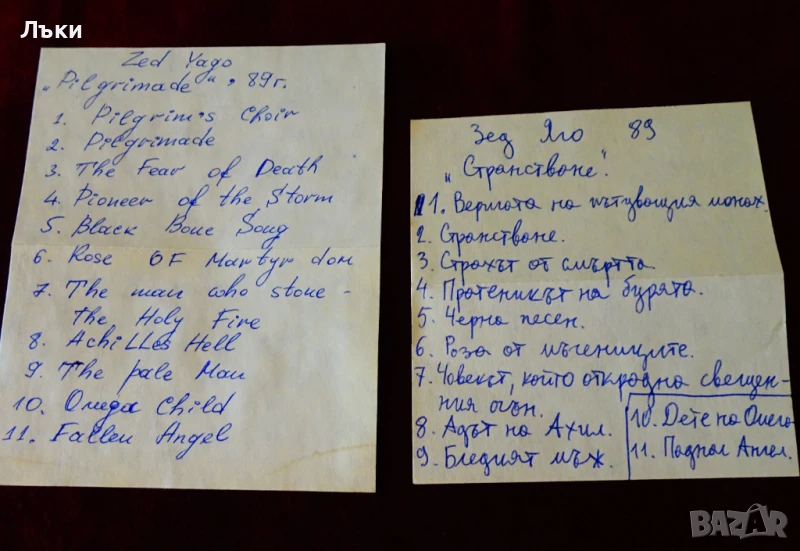 Лъки
Zed Yago
„Pilgrimade", 89г.
1. Pilgrim's Choir
2. Pilgrimade
3. The Fear of Death
4. Pioneer of the Storm
5. Black Bone Song
6. Rose OF Martyr dom
7. The man who stone -
the Holy Fire
8. Achilles Hell
9. The pale Man
10. Omega Child
11. Fallen Angel
Зед Яго 89
„Странстване".
1. Веригата на пътуващия монах.
2. Странстване.
3. Страхът от смъртта.
4. Пратеникът на бурята.
5. Черна песен.
6. Роза от мъчениците.
7. Човекът, който открадна свещен-
ния огън.
8. Адът на Ахил.
9. Бледният мъж.
10. Дете на Омега
11. Паднал Ангел.
BAZAR